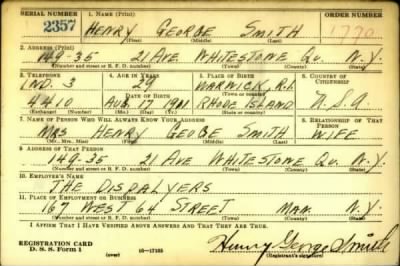 SERIAL NUMBER 1. NAME (Print) ORDER NUMBER
2357 HENRY GEORGE SMITH 1770
(First) (Middle) (Last)
2. ADDRESS (Print)
149-35 21 AVE WHITESTONE QU. N.Y.
(Number and street or R. F. D. number) (Town) (County) (State)
3. TELEPHONE 4. AGE IN YEARS 5. PLACE OF BIRTH 6. COUNTRY OF CITIZENSHIP
IND. 3 39 WARWICK, R.I.
DATE OF BIRTH (Town or county)
4410 AUG. 17 1901 RHODE ISLAND U.S.A.
(Exchange) (Number) (Mo.) (Day) (Yr.) (State or country)
7. NAME OF PERSON WHO WILL ALWAYS KNOW YOUR ADDRESS 8. RELATIONSHIP OF THAT PERSON
MRS HENRY GEORGE SMITH WIFE
(Mr., Mrs., Miss) (First) (Middle) (Last)
9. ADDRESS OF THAT PERSON
149-35 21 AVE WHITESTONE QU. N.Y.
(Number and street or R. F. D. number) (Town) (County) (State)
10. EMPLOYER'S NAME
THE DISPALYERS
11. PLACE OF EMPLOYMENT OR BUSINESS
167 WEST 64 STREET MAN. N.Y.
(Number and street or R. F. D. number) (Town) (County) (State)
I AFFIRM THAT I HAVE VERIFIED ABOVE ANSWERS AND THAT THEY ARE TRUE.
REGISTRATION CARD
D. S. S. Form 1 (over) 16-17105 Henry George Smith
(Registrant's signature)